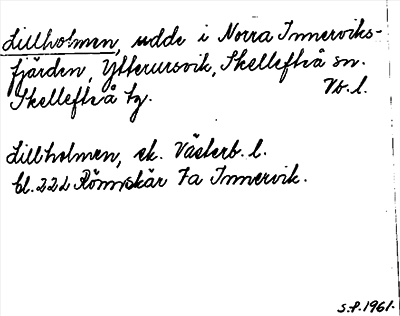 Lillholmen, udde i Norra Innerviks-
fjärden, Ytterursvik, Skellefteå sn.
Skellefteå tg. Vb. l.
Lillholmen, ek. Västerb. l.
bl. 22L Rönnskär 7a Innervik.
S.P. 1961.